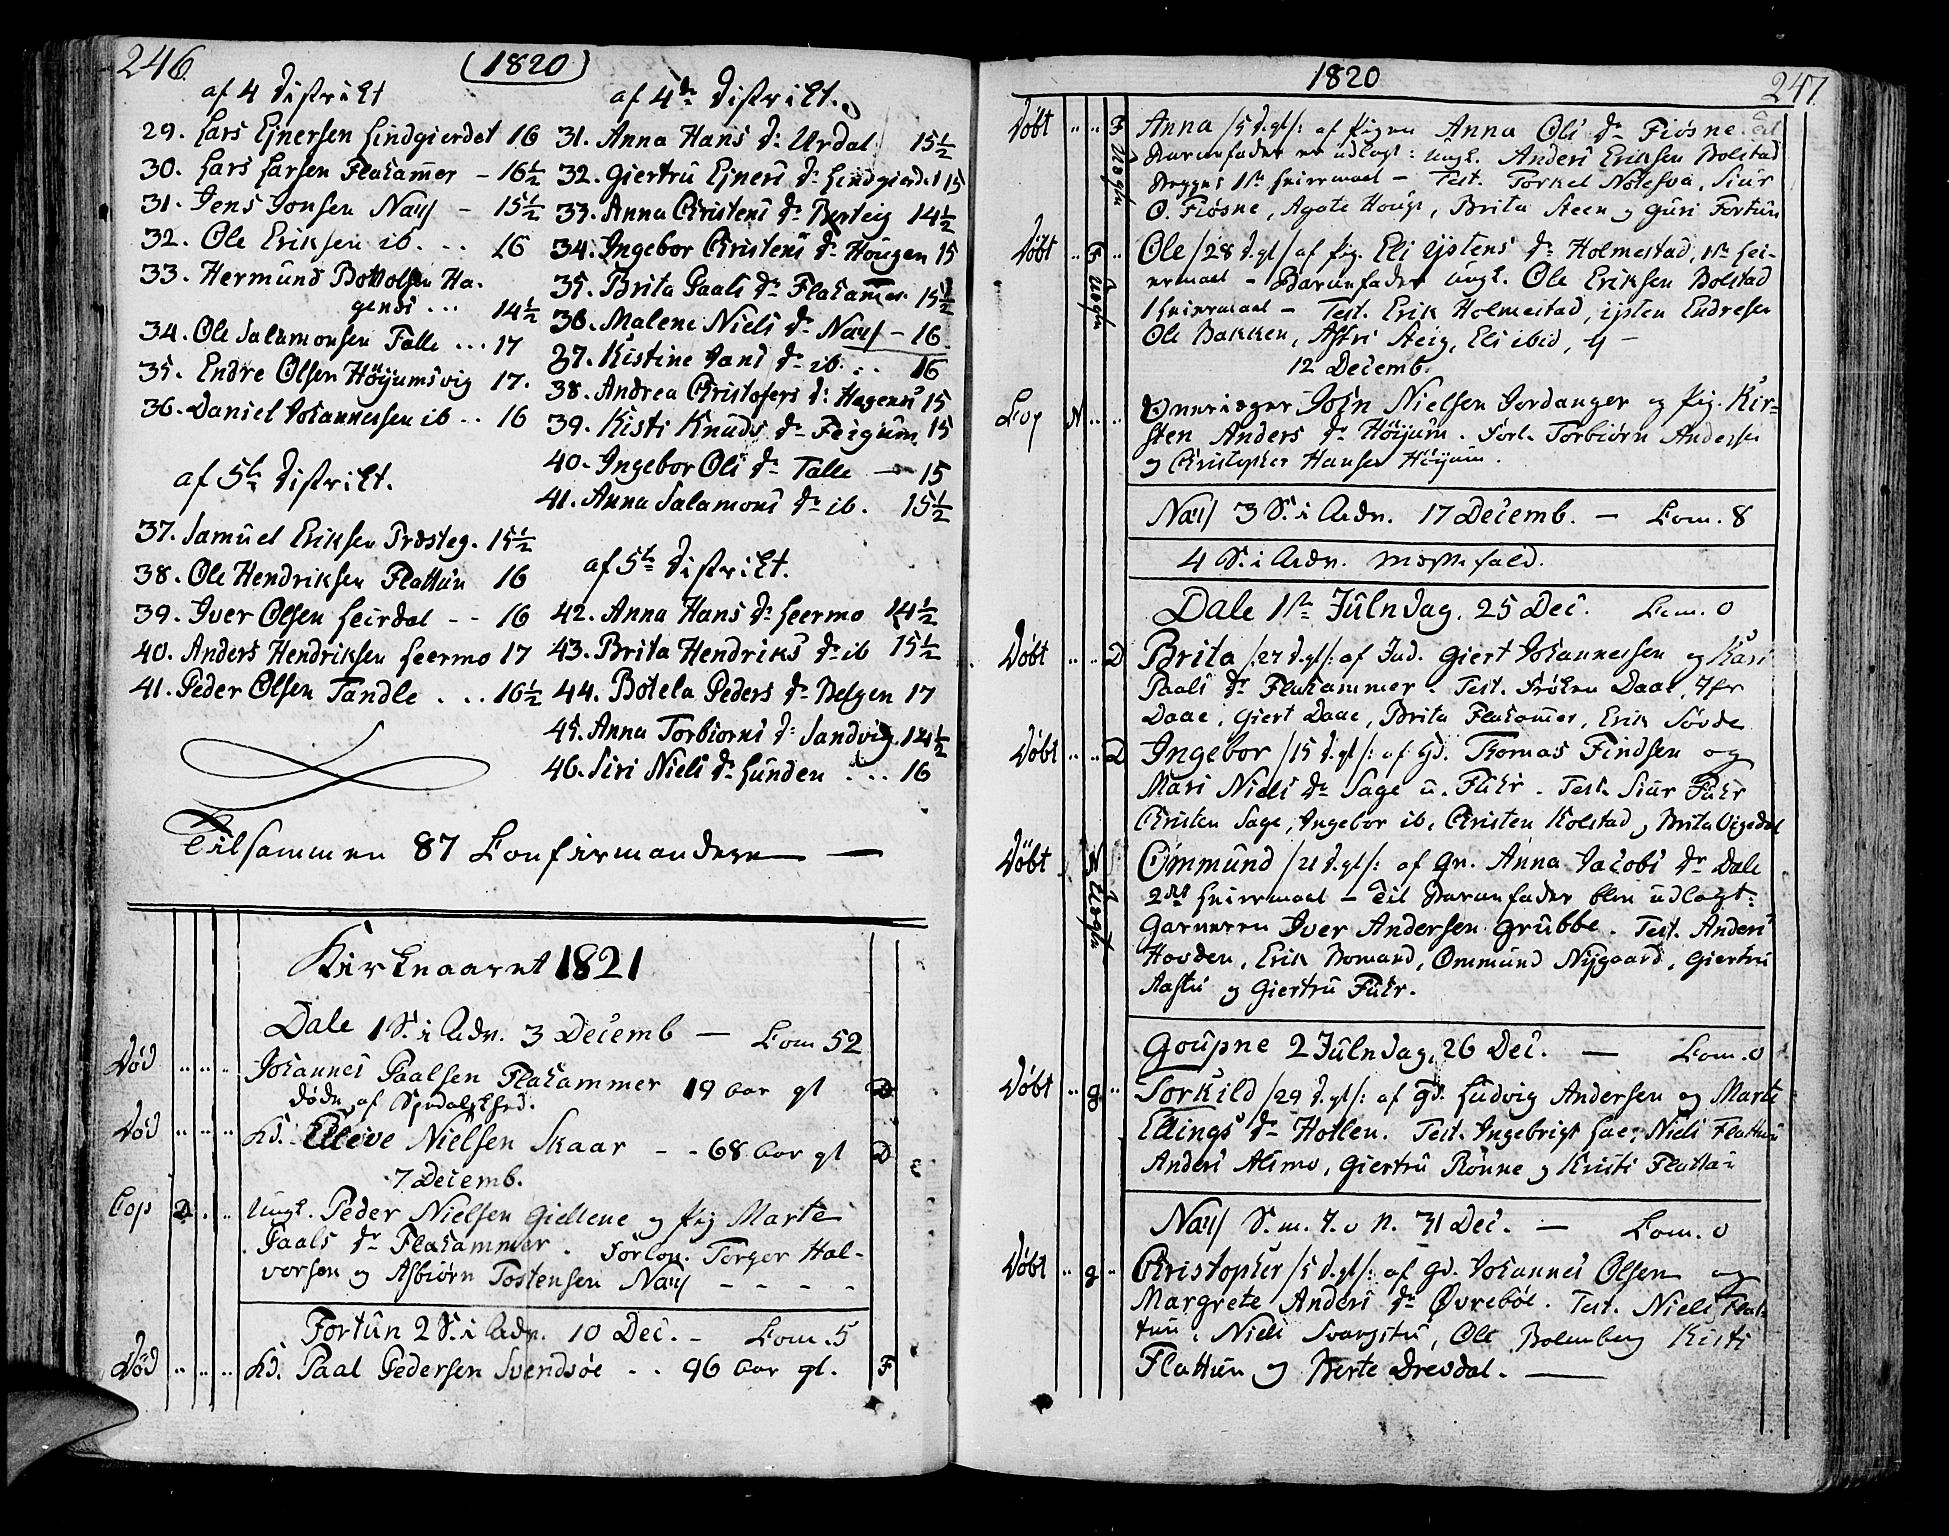 246
(1820)
af 4 Distrikt
29. Lars Ejnersen Lindgierdet 16
30. Lars Larsen Flahamer - 16½
31. Jens Jonsen Næss - 15½
32. Ole Eriksen ib. . . 16
33. Hermund Bottolfsen Ha-
gens ... 14½
34. Ole Salamonsen Talle ... 17
35. Endre Olsen Höÿumsvig 17.
36. Daniel Johannessen ib . . 16
af 5te Distrikt.
37. Samuel Eriksen Præsteg. 15½
38. Ole Hendriksen Flattun 16
39. Iver Olsen Leirdal - - 16
40. Anders Hendriksen Leermo 17
41. Peder Olsen Tandle . . . 16½
af 4de Distrikt.
31. Anna Hans dr Urdal 15½
32. Giertru Ejners dr Lindgierdet 15
33. Anna Christens dr Berteig 14½
34. Ingebor Christens dr Hougen 15
35. Brita Paals dr Flahamer 15½
36. Malene Niels dr Næss - 16
37. Kistine Jans dr ib. . . 16
38. Andrea Christofers dr Hagens 15
39. Kisti Knuds dr Feigum 15
40. Ingebor Ols dr Talle - 15
41. Anna Salamons dr ib. 15½
af 5te Distrikt.
42. Anna Hans dr Leermo 14½
43. Brita Hendriks dr ib 15½
44. Botela Peders dr Bergen 17
45. Anna Torbiorns dr Sandvig 14½
46. Siri Niels dr Lunden . . . 16
Tilsammen 87 Confirmandere —
Kirkeaaret 1821
Dale 1 S. i Adv. 3 Decemb — Com 52
Død Johannes Paalsen Flahammer 19 Aar gl D
døde af Spedalskhed.
Død Ld. Elleve Nielsen Skaar - - 68 Aar gl D
7 Decemb.
Cop D Ungk. Peder Nielsen Giellene og Pig Marte
Paals dr Flahammer. Forlov. Torger Hal-
vorsen og Asbiørn Tostensen Næss - - - -
Fortun 2 S. i Adv. 10 Dec. - Com. 5
Død Ld. Paal Pedersen Svendsøe . . 96 Aar gl. F
1820
247
Døbt F Anna /5 d.gl/: af Pigen Anna Ols dr Fiøsne. Til
Barnefader er udlagt: Ungk. Anders Eriksen Bolstad
Begges 1ste Leiermaal - Test. Torkel Notesva, Siur
O. Fiøsne, Agate Houge, Brita Steen og Guri Fortun
Døbt Ole /28 d.gl/ af Pig. Eli Ÿstens dr Holmestad, 1ste Lei-
ermaal - Barnefader Ungk. Ole Eriksen Bolstad
1 Leiermaal - Test. Erik Holmestad, Ÿsten Endresen
Ole Bakken, Astri Steig, Eli ibid,
12 Decemb.
Cop N Joen Nielsen Jordanger og Pig. Kir-
sten Anders dr Höÿum. Forl. Torbiørn Andersen
og Christopher Hansen Höÿum.
Næss 3 S. i Adv. 17 Decemb. — Com. 8
4 S. i Adv. Messefald.
Dale 1ste Juledag. 25 Dec. Com. 0
Døbt D Brita /:27 d.gl/: af Ind. Giert Johannessen og Kari
Paals dr Flahammer. Test. Frøken Daae, Jfr
Daae, Giert Daae, Brita Flahamer, Erik Søvde
Døbt D Ingebor /15 d.gl/: af Gd. Thomas Findsen og
Mari Niels dr Sage u. Fuhr. Test. Siur Fuhr
Christen Sage, Ingebor ib, Christen Kolstad, Brita Vigedal
Døbt Ommund /21 d.gl/: af Gr. Anna Jacobs dr Dale
2det Leiermaal - Til Barnefader blev udlagt:
Garveren Iver Andersen Grubbe. Test. Anders
Hovden, Erik Bomand, Ommund Nÿgaard, Giertru
og Giertru Fuhr.
Goupne 2 Juledag. 26 Dec. — Com. 0
Døbt g Torkild /29 d.gl/: af Gd. Ludvig Andersen og Marte
Ellings dr Hotlen. Test. Ingebrigt Niels Flattun
Anders Alsmo, Giertru Rønne og Kristi Flattun
Næss S. m. J. o N. 31 Dec. — Com. 0
Døbt g Christopher /5 d.gl/: af Gd. Johannes Olsen og
Margrete Anders dr Øvrebøe. Test. Niels Flat-
tun, Niels Svangstu, Ole Bolenberg Kisti
Flattun og Berte Drevdal. —